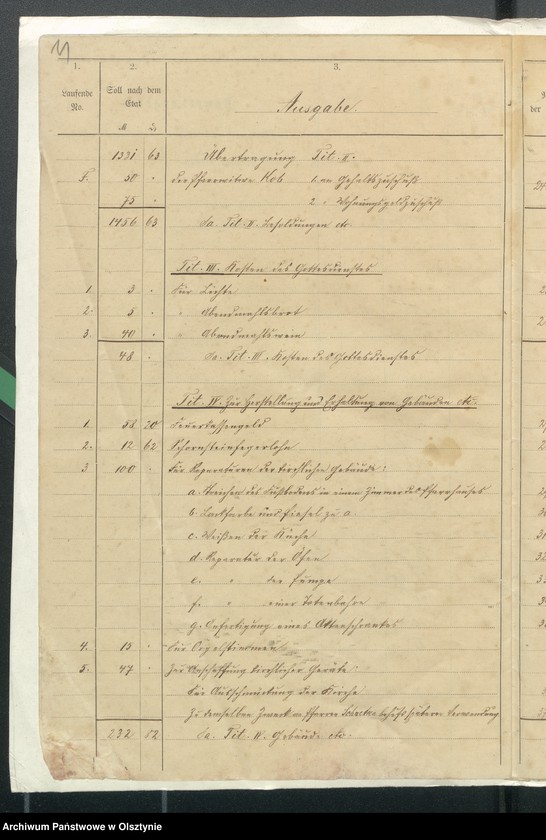 11
1. 2. 3.
Laufende No. Soll nach dem Etat Ausgabe.
M
1331 63 Übertragung Tit. II.
5. 30 . der Pfarrwitwe Kob 1. an Gehaltszuschuß
75 . 2. " Wohnungsgeldzuschuß
1456 63 Sa. Tit. II. Besoldungen etc.
Tit. III. Kosten des Gottesdienstes
1. 3 . Für Lichte
2. 5 . " Abendmahlsbrot
3. 40 . " Abendmahlswein
48 . Sa. Tit. III. Kosten des Gottesdienstes
Tit. IV. Zur Herstellung und Erhaltung von Gebäuden etc.
1. 58 20 Feuerkassengeld
2. 12 62 Schornsteinfegerlohn
3 100 . Für Reparaturen der kirchlichen Gebäude:
a. Streichen des Fußbodens in einem Zimmer des Pfarrhauses
b. Lackfarbe und Pinsel zu a.
c. Weißen der Küche
d. Reparatur der Öfen
e. " der Pumpe
f. " einer Totenbahre
g. Anfertigung eines Aktenschrankes
4. 15 . Für Orgelstimmen
5. 47 . Zur Anschaffung kirchlicher Geräte:
Für Ausschmückung der Kirche
Zu demselben Zweck an Pfarrer behufs späterer Verwendung
232 82 Sa. Tit. IV. Gebäude etc.
Archiwum Państwowe w Olsztynie